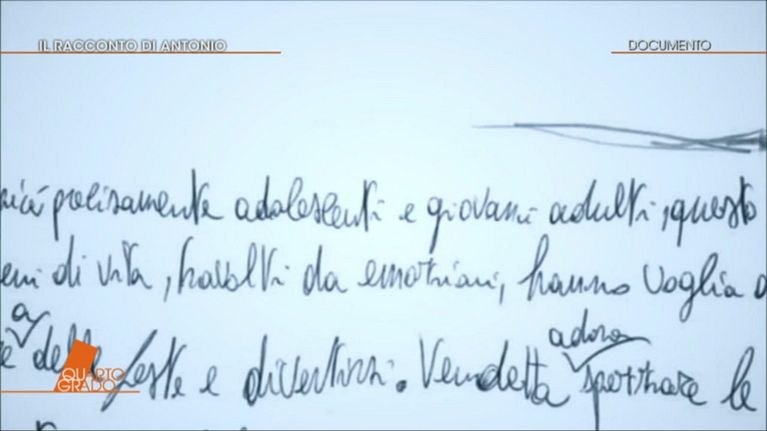 IL RACCONTO DI ANTONIO
DOCUMENTO
precisamente adolescenti e giovani adulti, questo
eni di vita, travolti da emozioni, hanno voglia
a adora
e delle feste e divertirsi. Vendetta le
QUARTO
GRADO